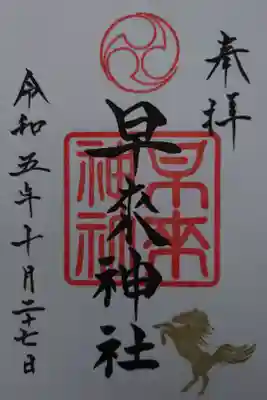 奉拝
早来神社
早来
神社
令和五年十月二十七日